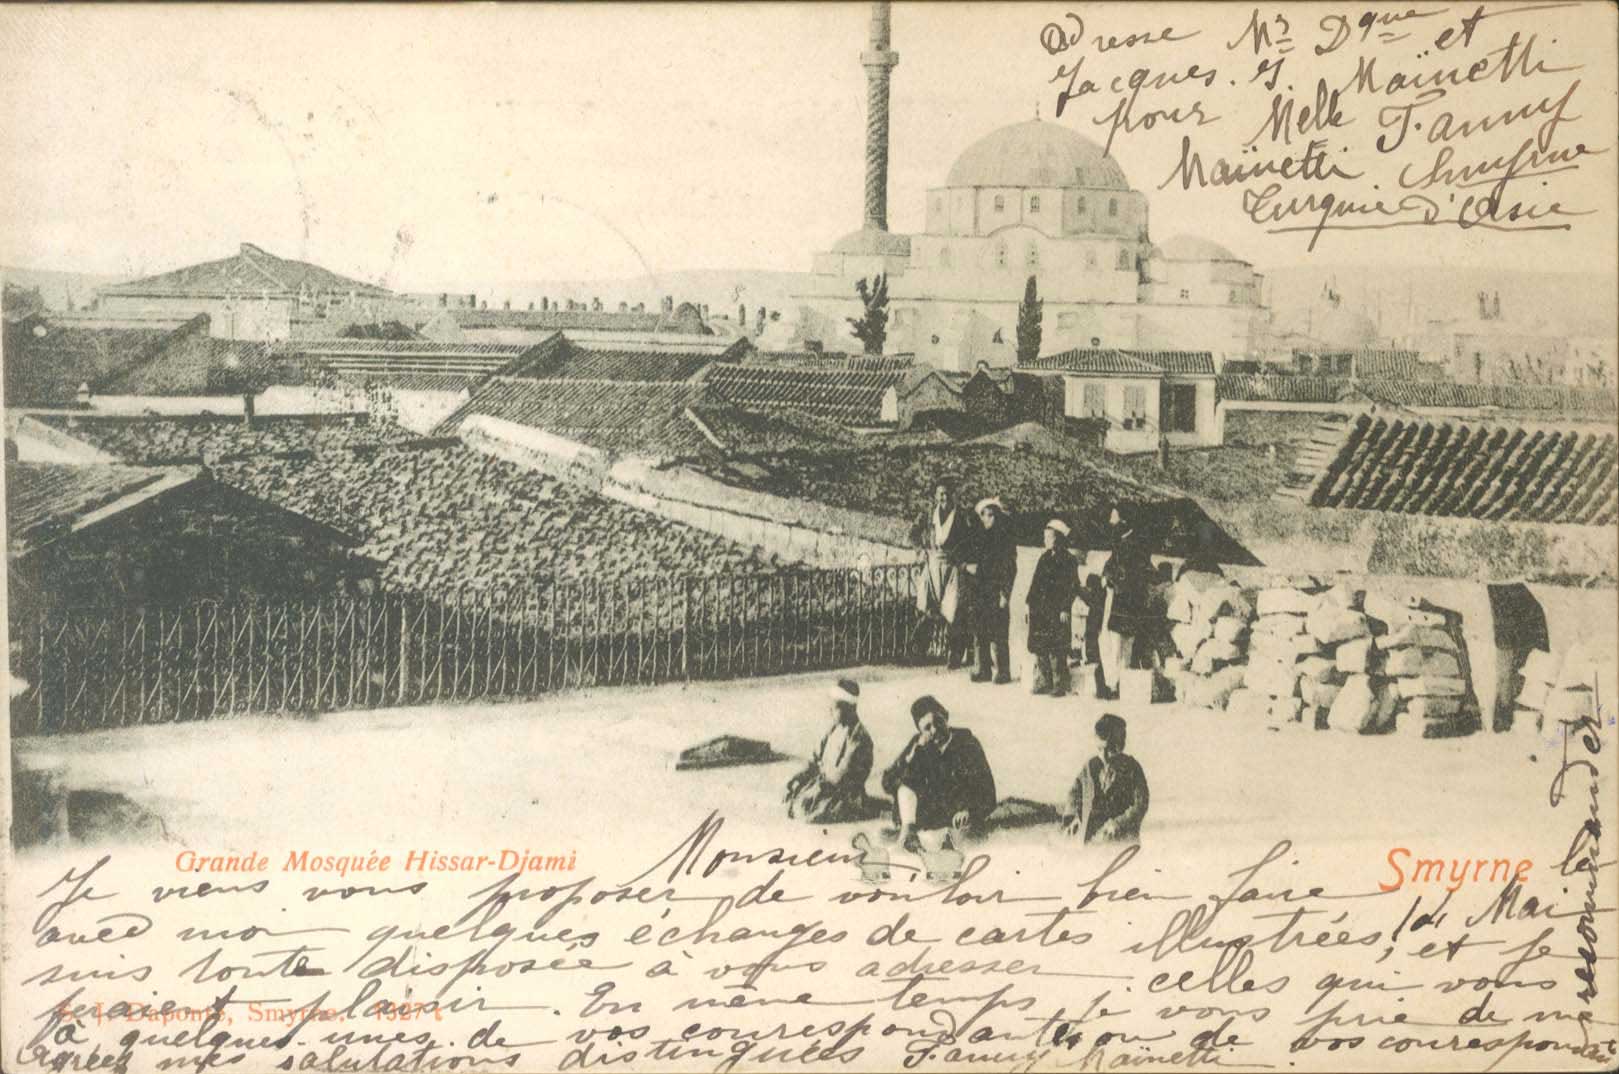 Adresse Mr Dque et
Jacques. G. Maïnetti
pour Melle Fanny
Maïnetti Smyrne
Turquie d'Asie
Grande Mosquée Hissar-Djami
Smyrne
Monsieur
le
Je viens vous proposer de vouloir bien faire
Mai
avec moi quelques échanges de cartes illustrées, et je
suis toute disposée à vous adresser celles qui vous
feraient plaisir. En même temps je vous prie de me
recommander
à quelques unes de vos correspondantes ou de vos correspondants
Agréez mes salutations distinguées Fanny Maïnetti
Daponte, Smyrne.